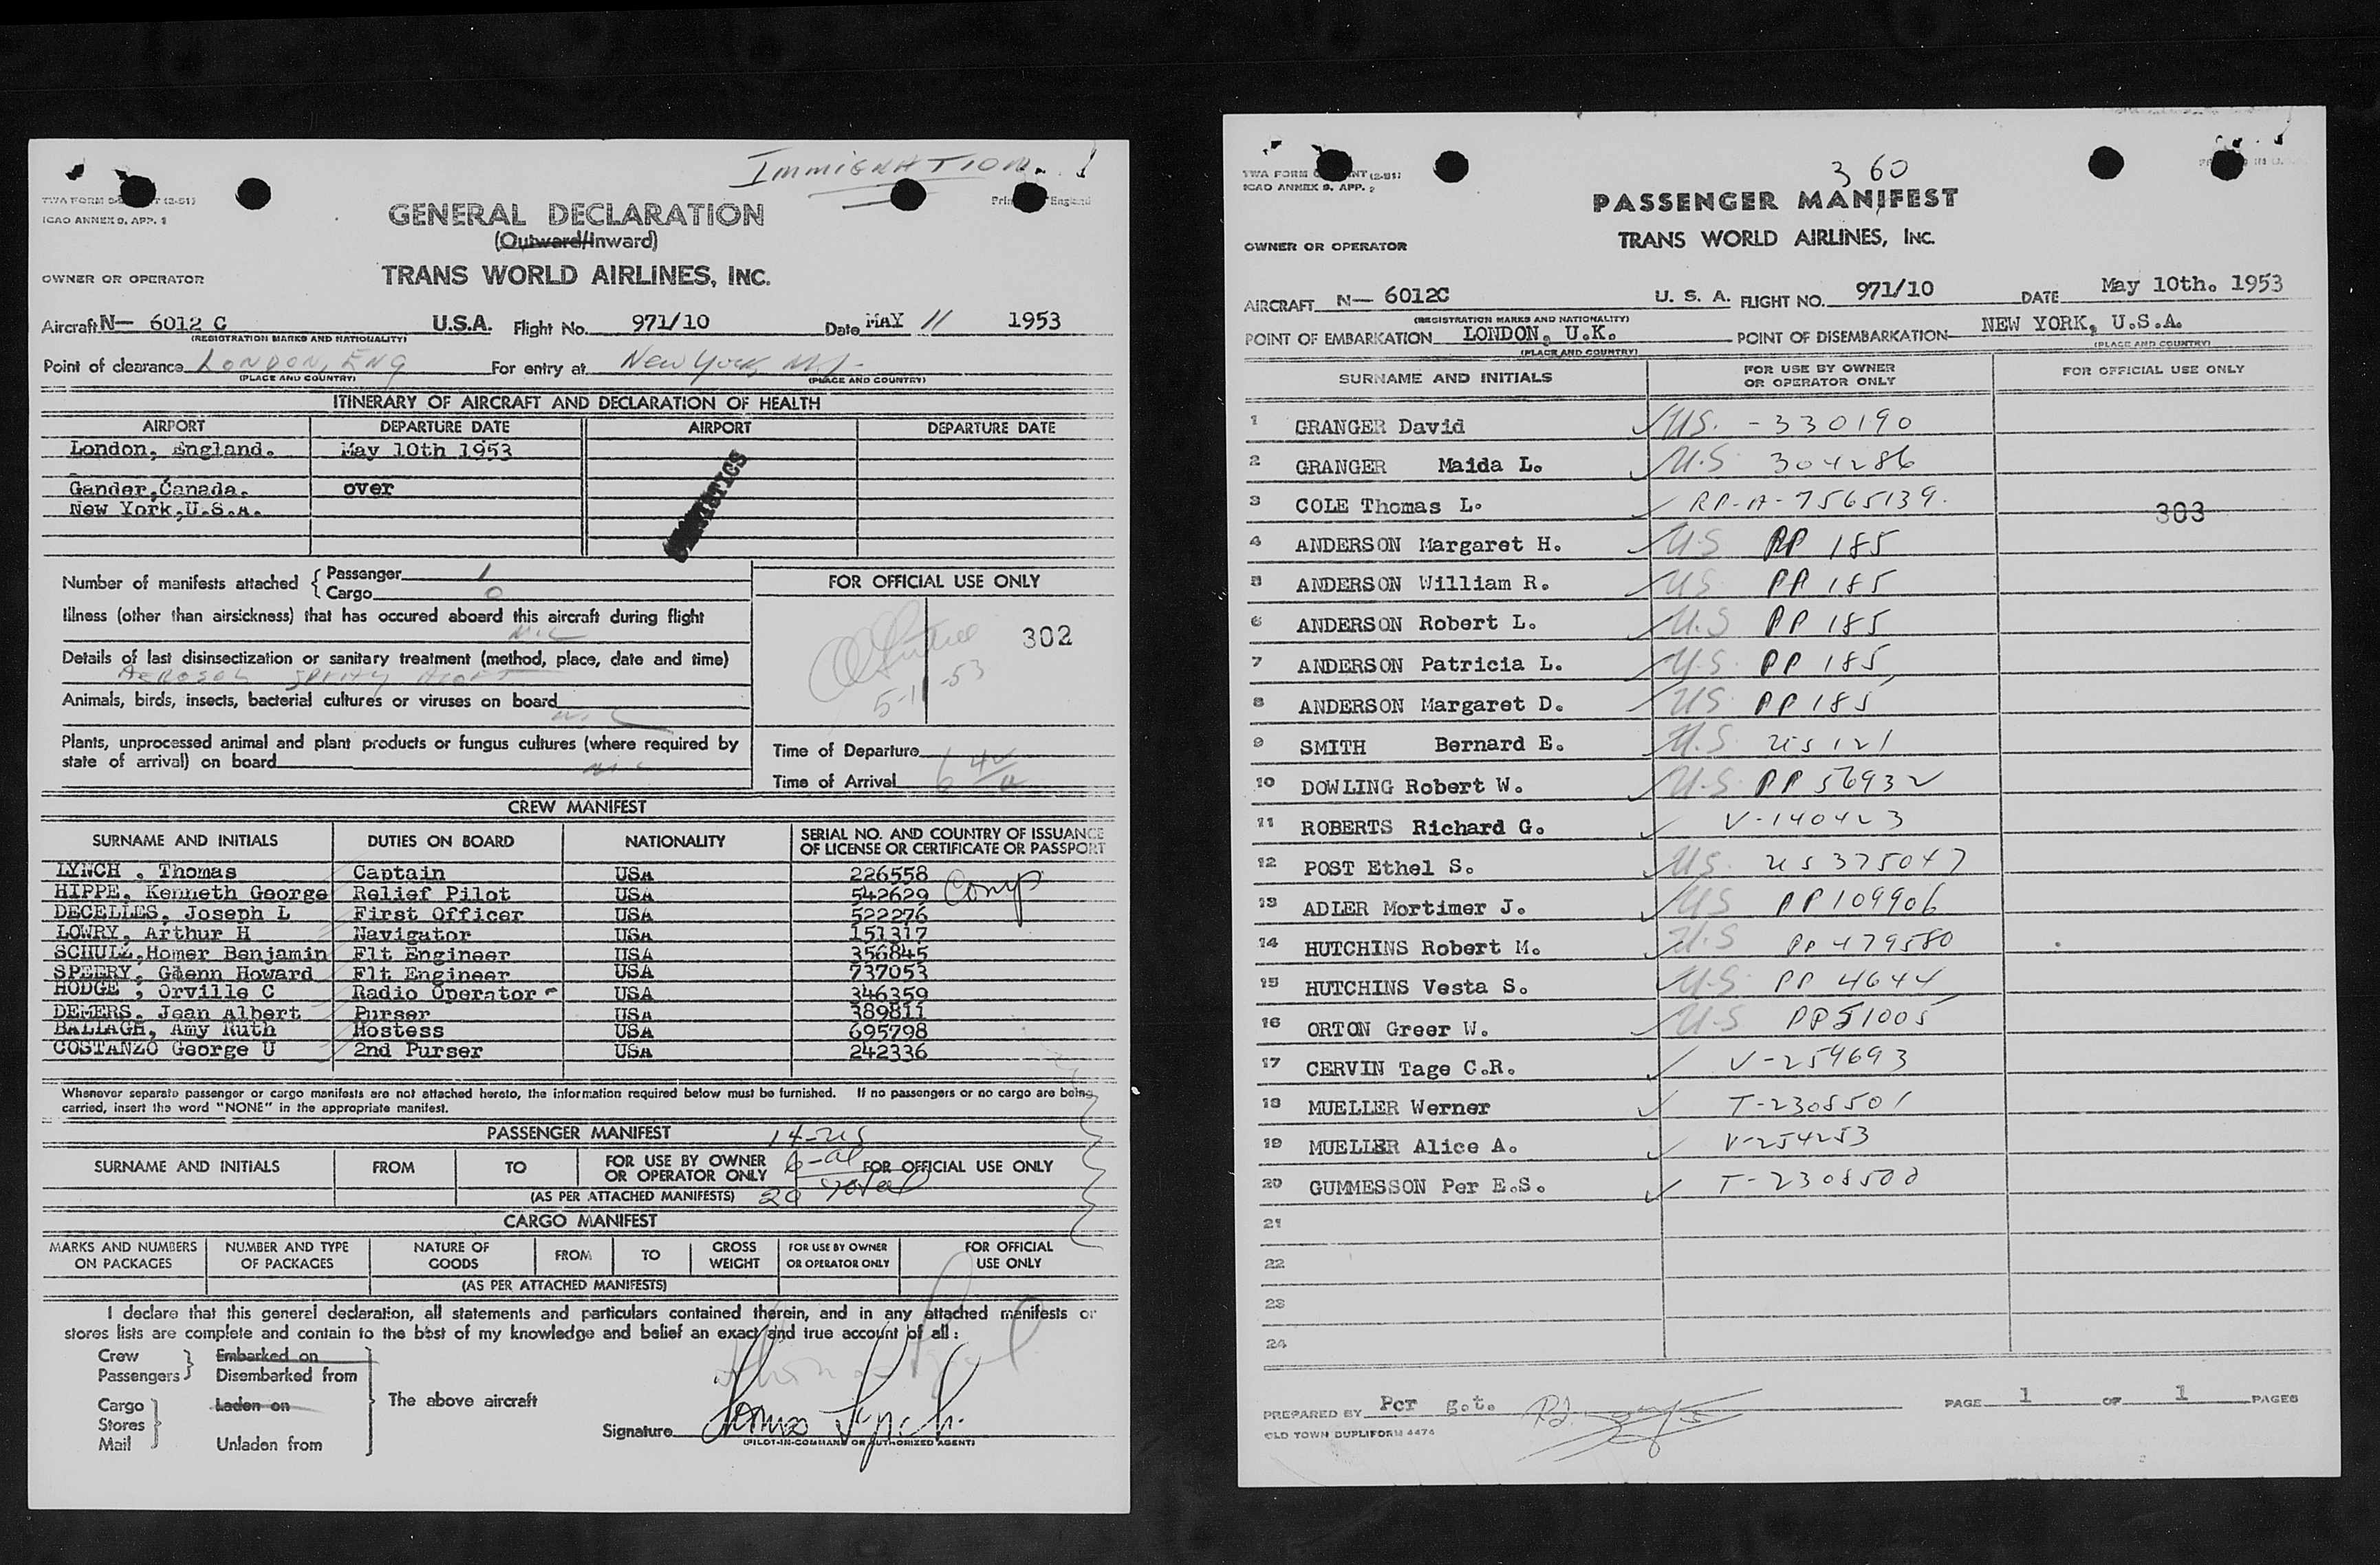 Immigration.
TWA FORM
(2-51)
ICAO ANNEX 9, APP. 1
England
GENERAL DECLARATION
(Outward/Inward)
OWNER OR OPERATOR
TRANS WORLD AIRLINES, INC.
Aircraft N— 6012 C U.S.A. Flight No. 971/10 Date MAY 11 1953
(REGISTRATION MARKS AND NATIONALITY)
Point of clearance LONDON, ENG For entry at New York, N.Y.
(PLACE AND COUNTRY) (PLACE AND COUNTRY)
ITINERARY OF AIRCRAFT AND DECLARATION OF HEALTH
AIRPORT DEPARTURE DATE AIRPORT DEPARTURE DATE
London, England. May 10th 1953
Gander,Canada. over
New York,U.S.A.
Number of manifests attached { Passenger 1
Cargo 0
FOR OFFICIAL USE ONLY
Illness (other than airsickness) that has occured aboard this aircraft during flight
302
Details of last disinsectization or sanitary treatment (method, place, date and time)
AEROSOL SPRAY
5-11-53
Animals, birds, insects, bacterial cultures or viruses on board
Plants, unprocessed animal and plant products or fungus cultures (where required by
state of arrival) on board
Time of Departure
Time of Arrival
CREW MANIFEST
SURNAME AND INITIALS DUTIES ON BOARD NATIONALITY SERIAL NO. AND COUNTRY OF ISSUANCE
OF LICENSE OR CERTIFICATE OR PASSPORT
LYNCH . Thomas Captain USA 226558
HIPPE, Kenneth George Relief Pilot USA 542629 Comp
DECELLES, Joseph L First Officer USA 522276
LOWRY, Arthur H Navigator USA 151317
SCHULZ,Homer Benjamin Flt Engineer USA 356845
SPEERY, Glenn Howard Flt Engineer USA 737053
HODGE , Orville C Radio Operator USA 346359
DEMERS, Jean Albert Purser USA 389811
BALLAGH, Amy Ruth Hostess USA 695798
COSTANZO George U 2nd Purser USA 242336
Whenever separate passenger or cargo manifests are not attached hereto, the information required below must be furnished. If no passengers or no cargo are being
carried, insert the word "NONE" in the appropriate manifest.
PASSENGER MANIFEST 14-US
SURNAME AND INITIALS FROM TO FOR USE BY OWNER
OR OPERATOR ONLY 6-al FOR OFFICIAL USE ONLY
(AS PER ATTACHED MANIFESTS) 20 Total
CARGO MANIFEST
MARKS AND NUMBERS
ON PACKAGES NUMBER AND TYPE
OF PACKAGES NATURE OF
GOODS FROM TO GROSS
WEIGHT FOR USE BY OWNER
OR OPERATOR ONLY FOR OFFICIAL
USE ONLY
(AS PER ATTACHED MANIFESTS)
I declare that this general declaration, all statements and particulars contained therein, and in any attached manifests or
stores lists are complete and contain to the best of my knowledge and belief an exact and true account of all:
Crew Embarked on
Passengers Disembarked from
Cargo Laden on The above aircraft
Stores
Mail Unladen from
Signature Thomas Lynch
(PILOT-IN-COMMAND OR AUTHORIZED AGENT)
360
TWA FORM
(2-51)
ICAO ANNEX 9, APP. 2
PASSENGER MANIFEST
OWNER OR OPERATOR
TRANS WORLD AIRLINES, INC.
AIRCRAFT N— 6012C U. S. A. FLIGHT NO. 971/10 DATE May 10th. 1953
(REGISTRATION MARKS AND NATIONALITY)
POINT OF EMBARKATION LONDON, U.K. POINT OF DISEMBARKATION NEW YORK, U.S.A.
(PLACE AND COUNTRY) (PLACE AND COUNTRY)
SURNAME AND INITIALS FOR USE BY OWNER
OR OPERATOR ONLY FOR OFFICIAL USE ONLY
1 GRANGER David US. - 330190
2 GRANGER Maida L. U.S 304286
3 COLE Thomas L. RP-A-7565139.
303
4 ANDERSON Margaret H. US PP 185
5 ANDERSON William R. US PP 185
6 ANDERSON Robert L. U.S PP 185
7 ANDERSON Patricia L. U.S. PP 185
8 ANDERSON Margaret D. US PP 185
9 SMITH Bernard E. U.S. US 121
10 DOWLING Robert W. U.S. PP 56932
11 ROBERTS Richard G. V-140423
12 POST Ethel S. US. US 375047
13 ADLER Mortimer J. US PP109906
14 HUTCHINS Robert M. U.S PP 479580
15 HUTCHINS Vesta S. U.S. PP 4644
16 ORTON Greer W. U.S PP51005
17 CERVIN Tage C.R. V-259693
18 MUELLER Werner T-2308501
19 MUELLER Alice A. V-254253
20 GUMMESSON Per E.S. T-2308500
21
22
23
24
PREPARED BY Per g.t. PAGE 1 OF 1 PAGES
OLD TOWN DUPLIFORM 4474